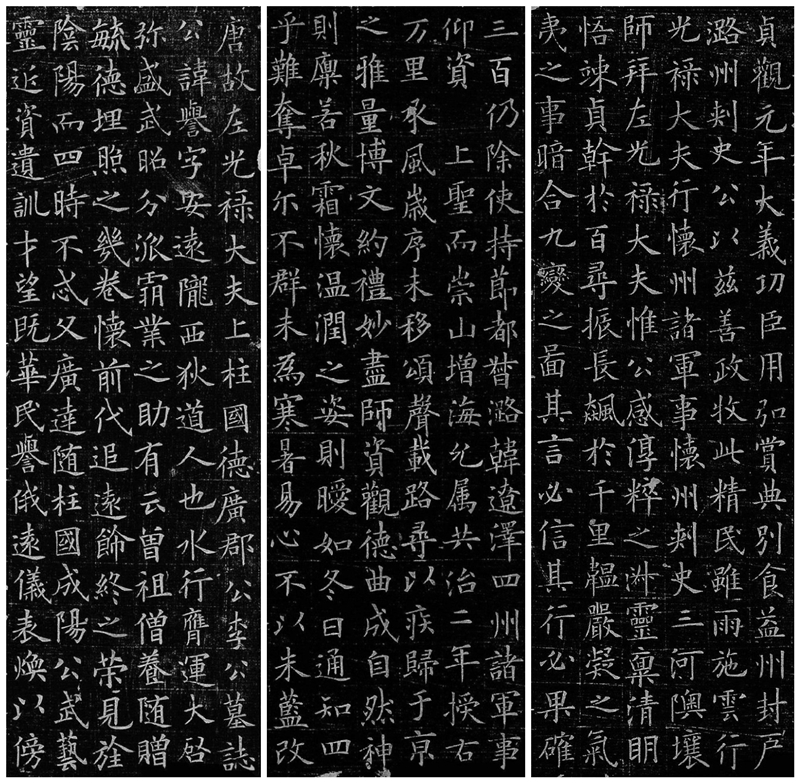 唐故左光祿大夫上柱國德廣郡公李公墓誌
公諱譽字安遠隴西狄道人也水行膺運大啓
弥盛武昭分派霸業之助有云曾祖僧養随贈
毓德埋照之幾卷懷前代追遠飾終之榮見旌
陰陽而四時不忒父廣達随柱國成陽公武藝
靈近資遺訓才望既華民譽俄遠儀表煥以傍
三百仍除使持節都督潞韓遼澤四州諸軍事
仰資 上聖而崇山增海允属共治二年授右
万里承風歲序未移頌聲載路尋以疾歸于京
之雅量博文約禮妙盡師資觀德曲成自然神
則廪若秋霜懷温潤之姿則曖如冬日通知四
乎難奪卓尓不群未為寒暑易心不以朱藍改
貞觀元年大義功臣用弘賞典別食益州封戶
潞州刺史公以茲善政牧此精民雖雨施雲行
光祿大夫行懷州諸軍事懷州刺史三河隩壤
師拜左光祿大夫惟公感淳粹之淋靈禀清明
悟竦貞幹於百尋振長飆於千里韞嚴凝之氣
夷之事暗合九變之啚其言必信其行必果確